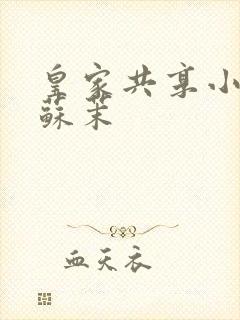 皇家共享小
蘇茉
血天衣